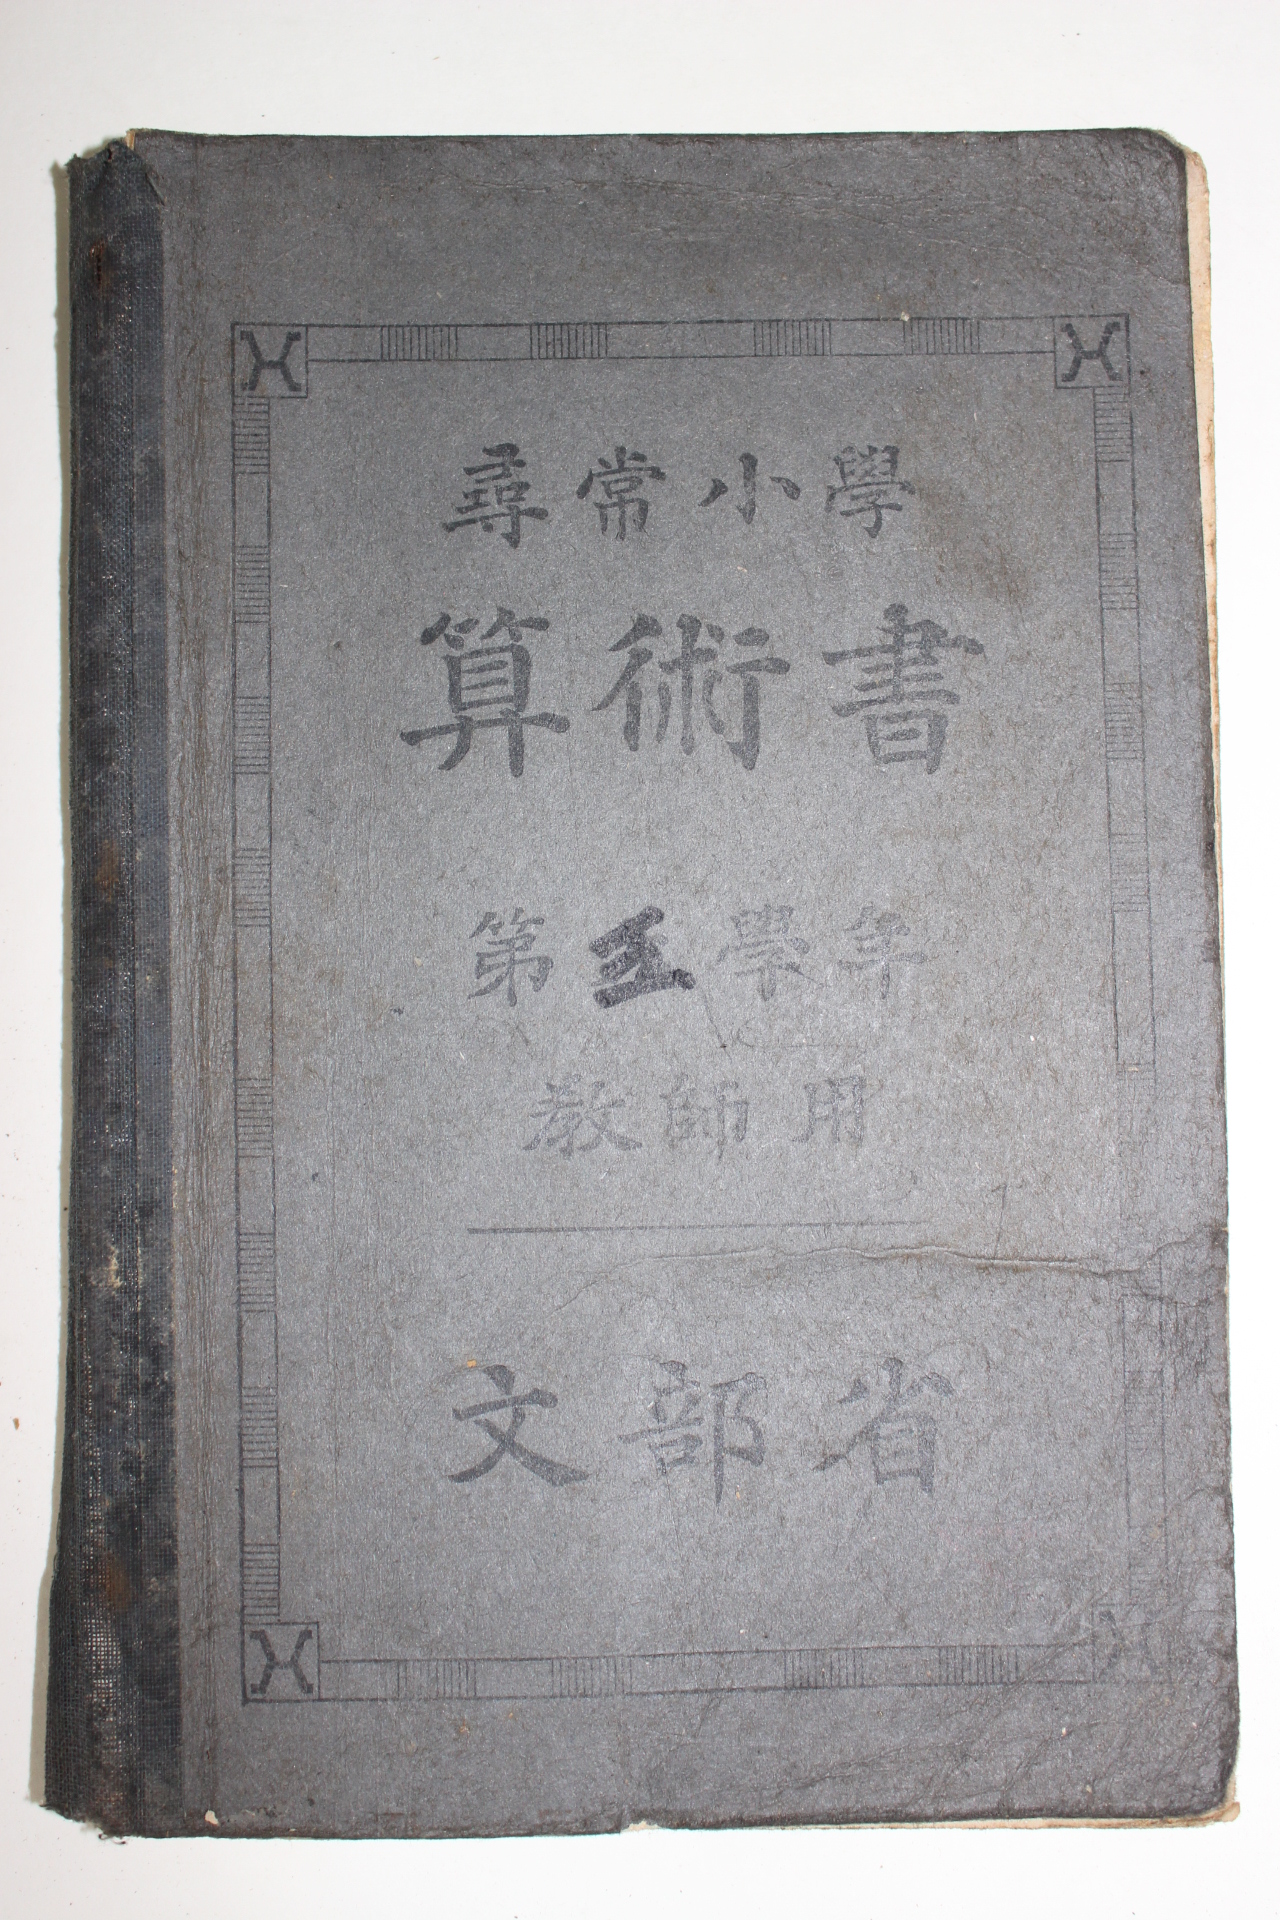 尋常小學
算術書
第五學年
教師用
文部省